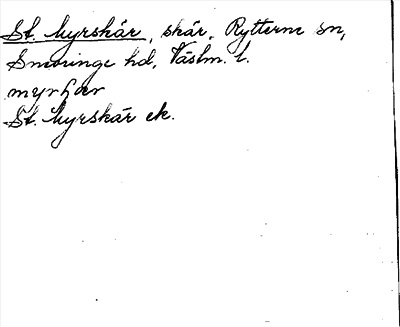 St. Myrskär, skär, Rytterne sn,
Snevringe hd, Västm. l.
St. Myrskär ek.